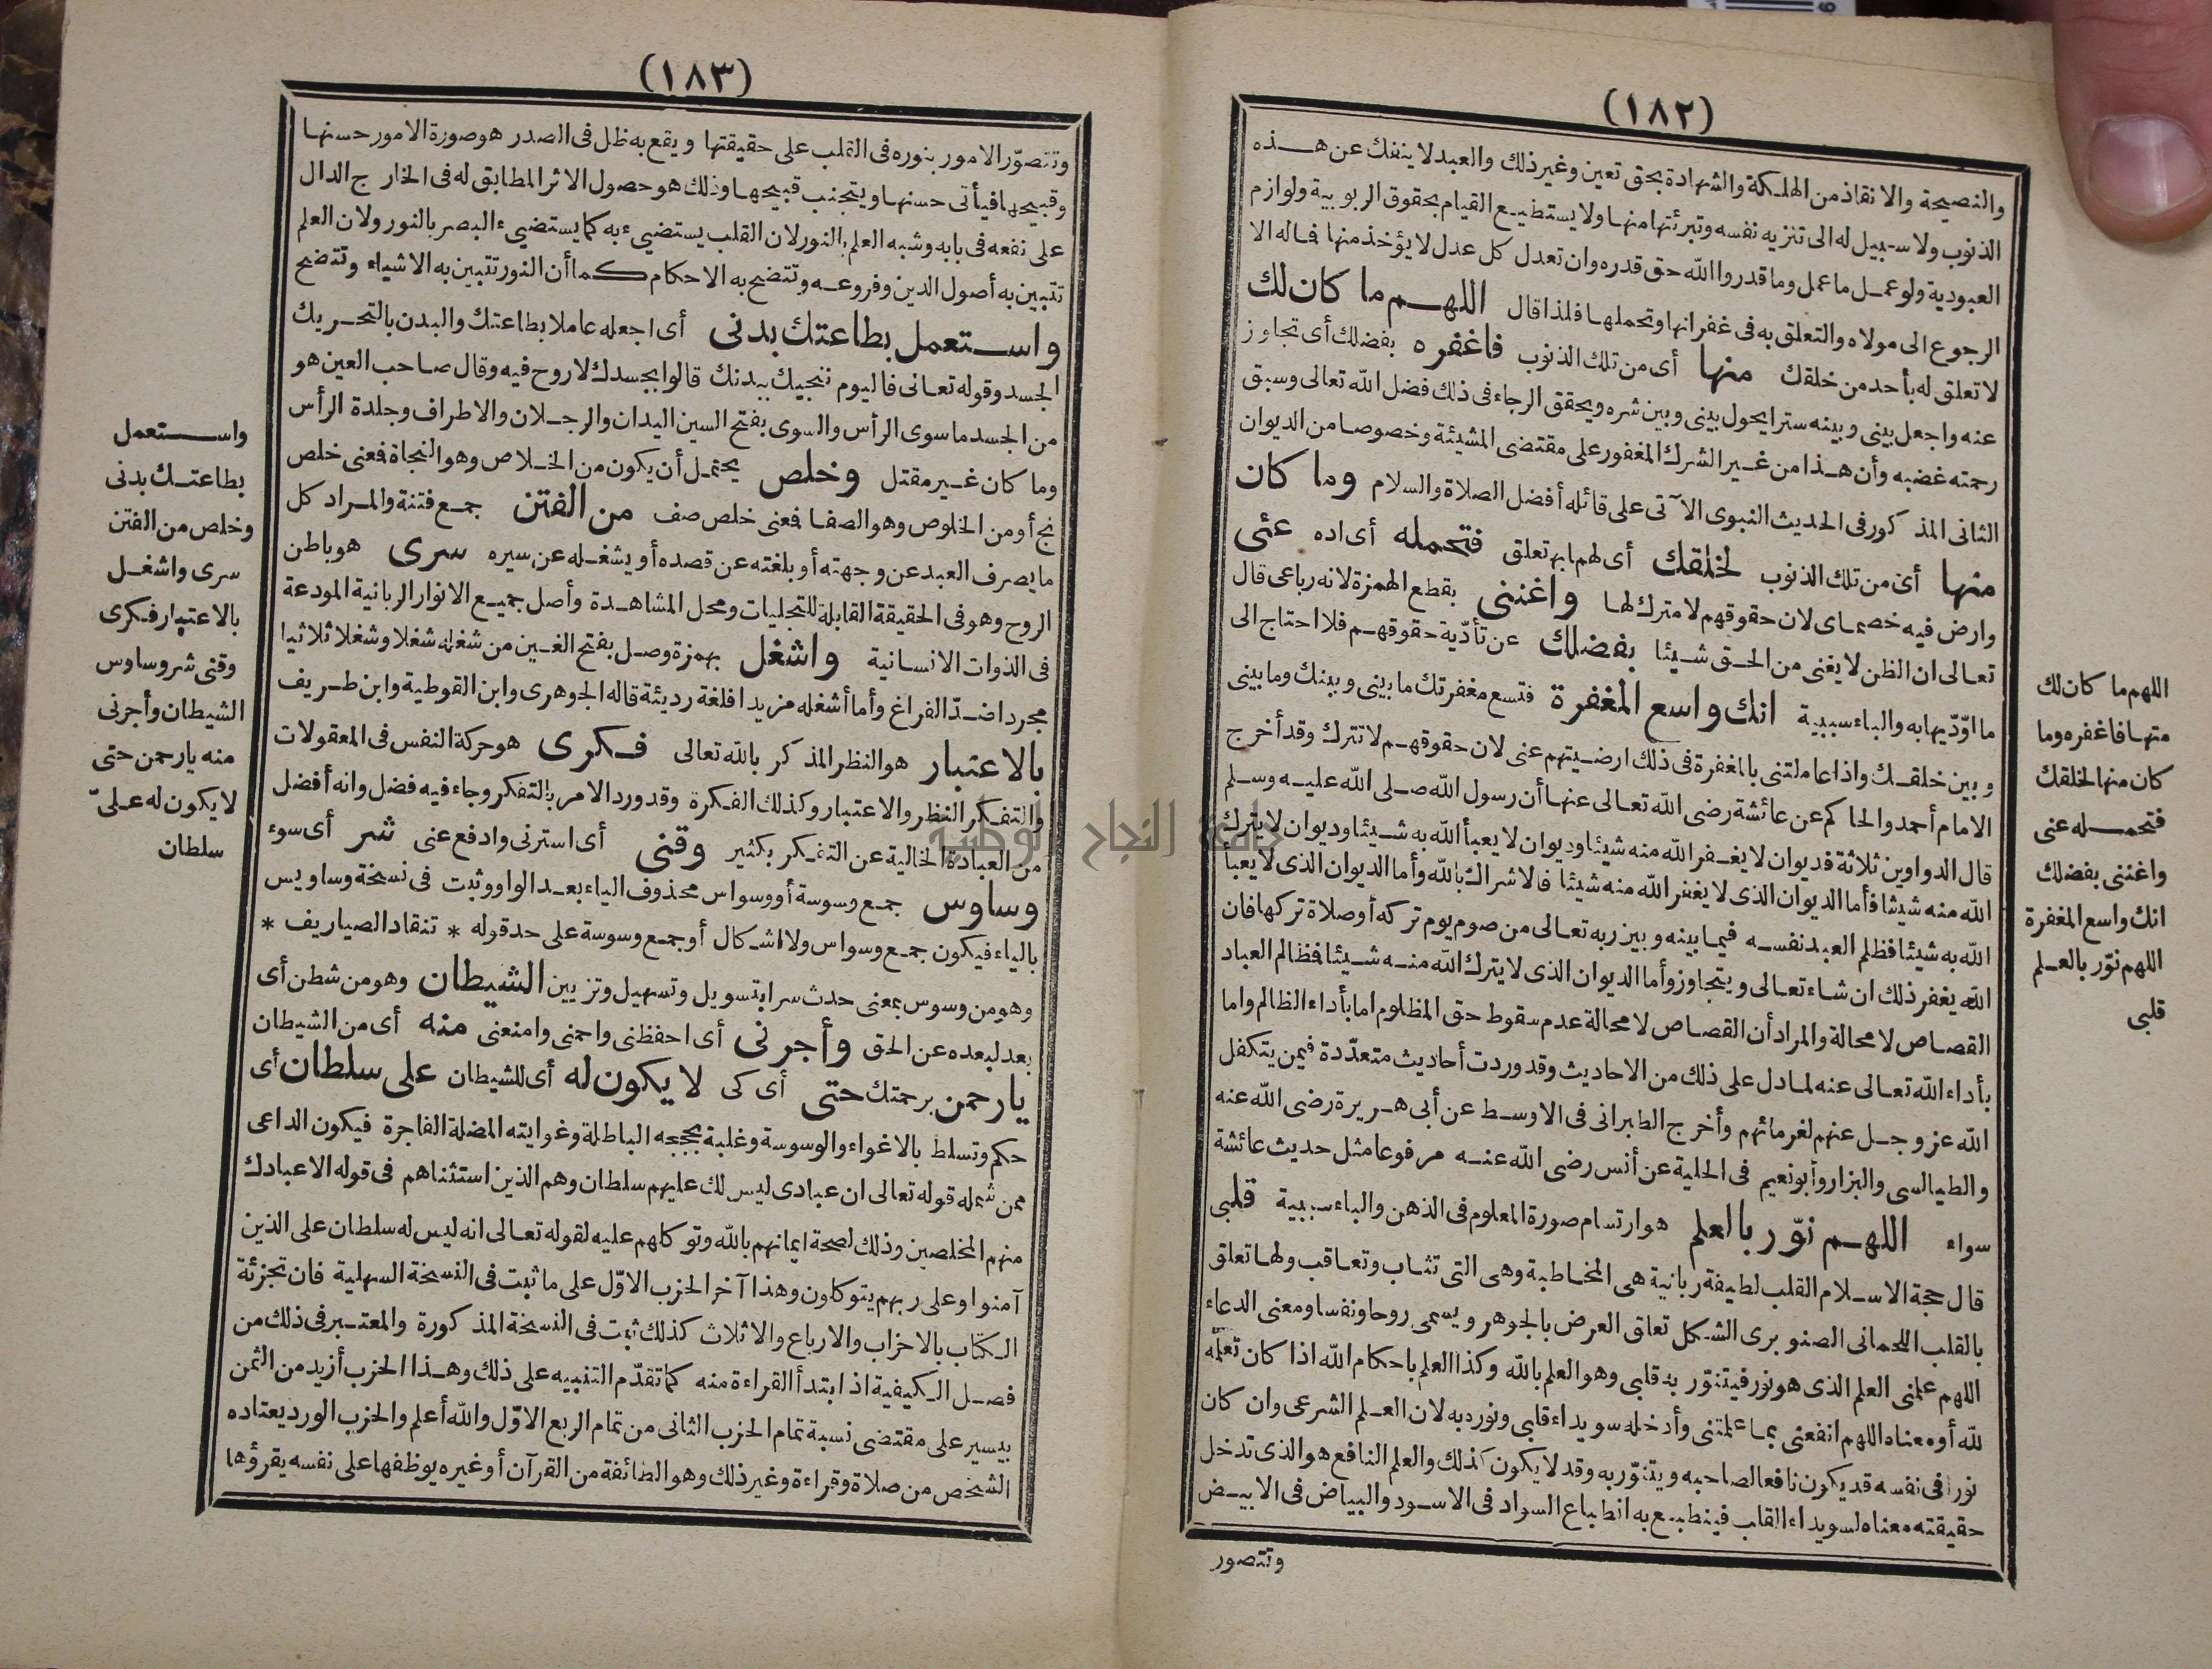 (١٨٢)
والنصيحة والانقاذ من الهلكة والشهادة بحق تعين وغير ذلك والعبد لا ينفك عن هذه
الذنوب ولا سبيل له الى تنزيه نفسه وتبرئتها منها ولا يستطيع القيام بحقوق الربوبية ولوازم
العبودية ولو عمل ما عمل وما قدروا الله حق قدره وان تعدل كل عدل لا يؤخذ منها فماله الا
الرجوع الى مولاه والتعلق به فى غفرانها وتحملها فلذا قال اللهم ما كان لك
منها أى من تلك الذنوب فاغفره بفضلك أى تجاوز لا تعلق له بأحد من خلقك
عنه واجعل بينى وبينه سترا يحول بينى وبين شره ويحقق الرجاء فى ذلك فضل الله تعالى وسبق
رحمته غضبه وأن هذا من غير الشرك المغفور على مقتضى المشيئة وخصوصا من الديوان
الثانى المذكور فى الحديث النبوى الآتى على قائله أفضل الصلاة والسلام وما كان
منها أى من تلك الذنوب لخلقك أى لهم بها تعلق فتحمله أى اده عنى
وارض فيه خصماى لان حقوقهم لا مترك لها واغننى بقطع الهمزة لانه رباعى قال
تعالى ان الظن لا يغنى من الحق شيئا بفضلك عن تأدّية حقوقهم فلا احتاج الى
ما اوّدّيها به والباء سببية انك واسع المغفرة فتسع مغفرتك ما بينى وبينك وما بينى
وبين خلقك واذا عاملتنى بالمغفرة فى ذلك ارضيتهم عنى لان حقوقهم لا تترك وقد أخرج
الامام أحمد والحاكم عن عائشة رضى الله تعالى عنها أن رسول الله صلى الله عليه وسلم
قال الدواوين ثلاثة فديوان لا يغفر الله منه شيئا وديوان لا يعبأ الله به شيئا وديوان لا يترك
الله منه شيئا فأما الديوان الذى لا يغفر الله منه شيئا فالاشراك بالله وأما الديوان الذى لا يعبأ
الله به شيئا فظلم العبد نفسه فيما بينه وبين ربه تعالى من صوم يوم تركه أو صلاة تركها فان
الله يغفر ذلك ان شاء تعالى ويتجاوز وأما الديوان الذى لا يترك الله منه شيئا فظالم العباد
القصاص لا محالة والمراد أن القصاص لا محالة عدم سقوط حق المظلوم اما بأداء الظالم واما
بأداء الله تعالى عنه لما دل على ذلك من الاحاديث وقد وردت أحاديث متعدّدة فيمن يتكفل
الله عز وجل عنهم لغرمائهم وأخرج الطبرانى فى الاوسط عن أبى هريرة رضى الله عنه
والطيالسى والبزار وأبو نعيم فى الحلية عن أنس رضى الله عنه مرفوعا مثل حديث عائشة
سواء اللهم نوّر بالعلم هو ارتسام صورة المعلوم فى الذهن والباء سببية قلبى
قال حجة الاسلام القلب لطيفة ربانية هى المخاطبة وهى التى تثاب وتعاقب ولها تعلق
بالقلب اللحمانى الصنوبرى الشكل تعلق العرض بالجوهر ويسمى روحا ونفسا ومعنى الدعاء
اللهم علمنى العلم الذى هو نور فيتنوّر به قلبى وهو العلم بالله وكذا العلم باحكام الله اذا كان تعلّمه
لله أو معناه اللهم انفعنى بما علمتنى وأدخله سويداء قلبى ونوره به لان العلم الشرعى وان كان
نورا فى نفسه قد يكون نافعا لصاحبه ويتنوّر به وقد لا يكون كذلك والعلم النافع هو الذى تدخل
حقيقته معناه لسويداء القلب فينطبع به انطباع السواد فى الاسود والبياض فى الابيض
وتتصور
اللهم ما كان لك
منها فاغفره وما
كان منها لخلقك
فتحمله عنى
واغننى بفضلك
انك واسع المغفرة
اللهم نوّر بالعلم
قلبى
(١٨٣)
وتتصوّر الامور بنوره فى القلب على حقيقتها ويقع به ظل فى الصدر هو صورة الامور حسنها
وقبيحها فيأتى حسنها ويتجنب قبيحها وذلك هو حصول الاثر المطابق له فى الخارج الدال
على نفعه فى بابه وشبه العلم بالنور لان القلب يستضىء به كما يستضىء البصر بالنور ولان العلم
تتبين به أصول الدين وفروعه وتتضح به الاحكام كما أن النور تتبين به الاشياء وتتضح
واستعمل بطاعتك بدنى أى اجعله عاملا بطاعتك والبدن بالتحريك
الجسد وقوله تعالى فاليوم ننجيك ببدنك قالوا بجسدك لا روح فيه وقال صاحب العين هو
من الجسد ما سوى الرأس والسوى بفتح السين اليدان والرجلان والاطراف وجلدة الرأس
وما كان غير مقتل وخلص يحتمل أن يكون من الخلاص وهو النجاة فعنى خلص
نج أو من الخلوص وهو الصفا فعنى خلص صف من الفتن جمع فتنة والمراد كل
ما يصرف العبد عن وجهته أو يلفته عن قصده أو يشغله عن سيره سرى هو باطن
الروح وهو فى الحقيقة القابلة للتجليات ومحل المشاهدة وأصل جميع الانوار الربانية المودعة
فى الذوات الانسانية واشغل بهمزة وصل بفتح الغين من شغله شغلا وشغلا ثلاثيا
مجردا ضدّ الفراغ وأما أشغله مزيدا فلغة رديئة قاله الجوهرى وابن القوطية وابن طريف
بالاعتبار هو النظر المذكر بالله تعالى فكرى هو حركة النفس فى المعقولات
والتفكر النظر والاعتبار وكذلك الفكرة وقد ورد الامر بالتفكر وجاء فيه فضل وانه أفضل
من العبادة الخالية عن التفكر بكثير وقنى أى استرنى وادفع عنى شر أى سوء
وساوس جمع وسوسة أو وسواس محذوف الياء بعد الواو وثبت فى نسخة وساويس
بالياء فيكون جمع وسواس ولا اشكال أو جمع وسوسة على حد قوله * تنقاد الصياريف *
وهو من وسوس بمعنى حدث سرا بتسويل وتسهيل وتزيين الشيطان وهو من شطن أى
بعد لبعده عن الحق وأجرنى أى احفظنى واحمنى وامنعنى منه أى من الشيطان
يا رحمن برحمتك حتى أى كى لا يكون له أى للشيطان على سلطان أى
حكم وتسلط بالاغواء والوسوسة وغلبة بحججه الباطلة وغوايته المضلة الفاجرة فيكون الداعى
ممن شمله قوله تعالى ان عبادى ليس لك عليهم سلطان وهم الذين استثناهم فى قوله الا عبادك
منهم المخلصين وذلك لصحة ايمانهم بالله وتوكلهم عليه لقوله تعالى انه ليس له سلطان على الذين
آمنوا وعلى ربهم يتوكلون وهذا آخر الحزب الاوّل على ما ثبت فى النسخة السهلية فان تجزئة
الكتاب بالاحزاب والارباع والاثلاث كذلك ثبت فى النسخة المذكورة والمعتبر فى ذلك من
فصل الكيفية اذ ابتدأ القراءة منه كما تقدّم التنبيه على ذلك وهذا الحزب أزيد من الثمن
بيسير على مقتضى نسبة تمام الحزب الثانى من تمام الربع الاوّل والله أعلم والحزب الورد يعتاده
الشخص من صلاة وقراءة وغير ذلك وهو الطائفة من القرآن أو غيره يوظفها على نفسه يقرؤها
واستعمل
بطاعتك بدنى
وخلص من الفتن
سرى واشغل
بالاعتبار فكرى
وقنى شر وساوس
الشيطان وأجرنى
منه يا رحمن حتى
لا يكون له علىّ
سلطان
جامعة النجاح الوطنية